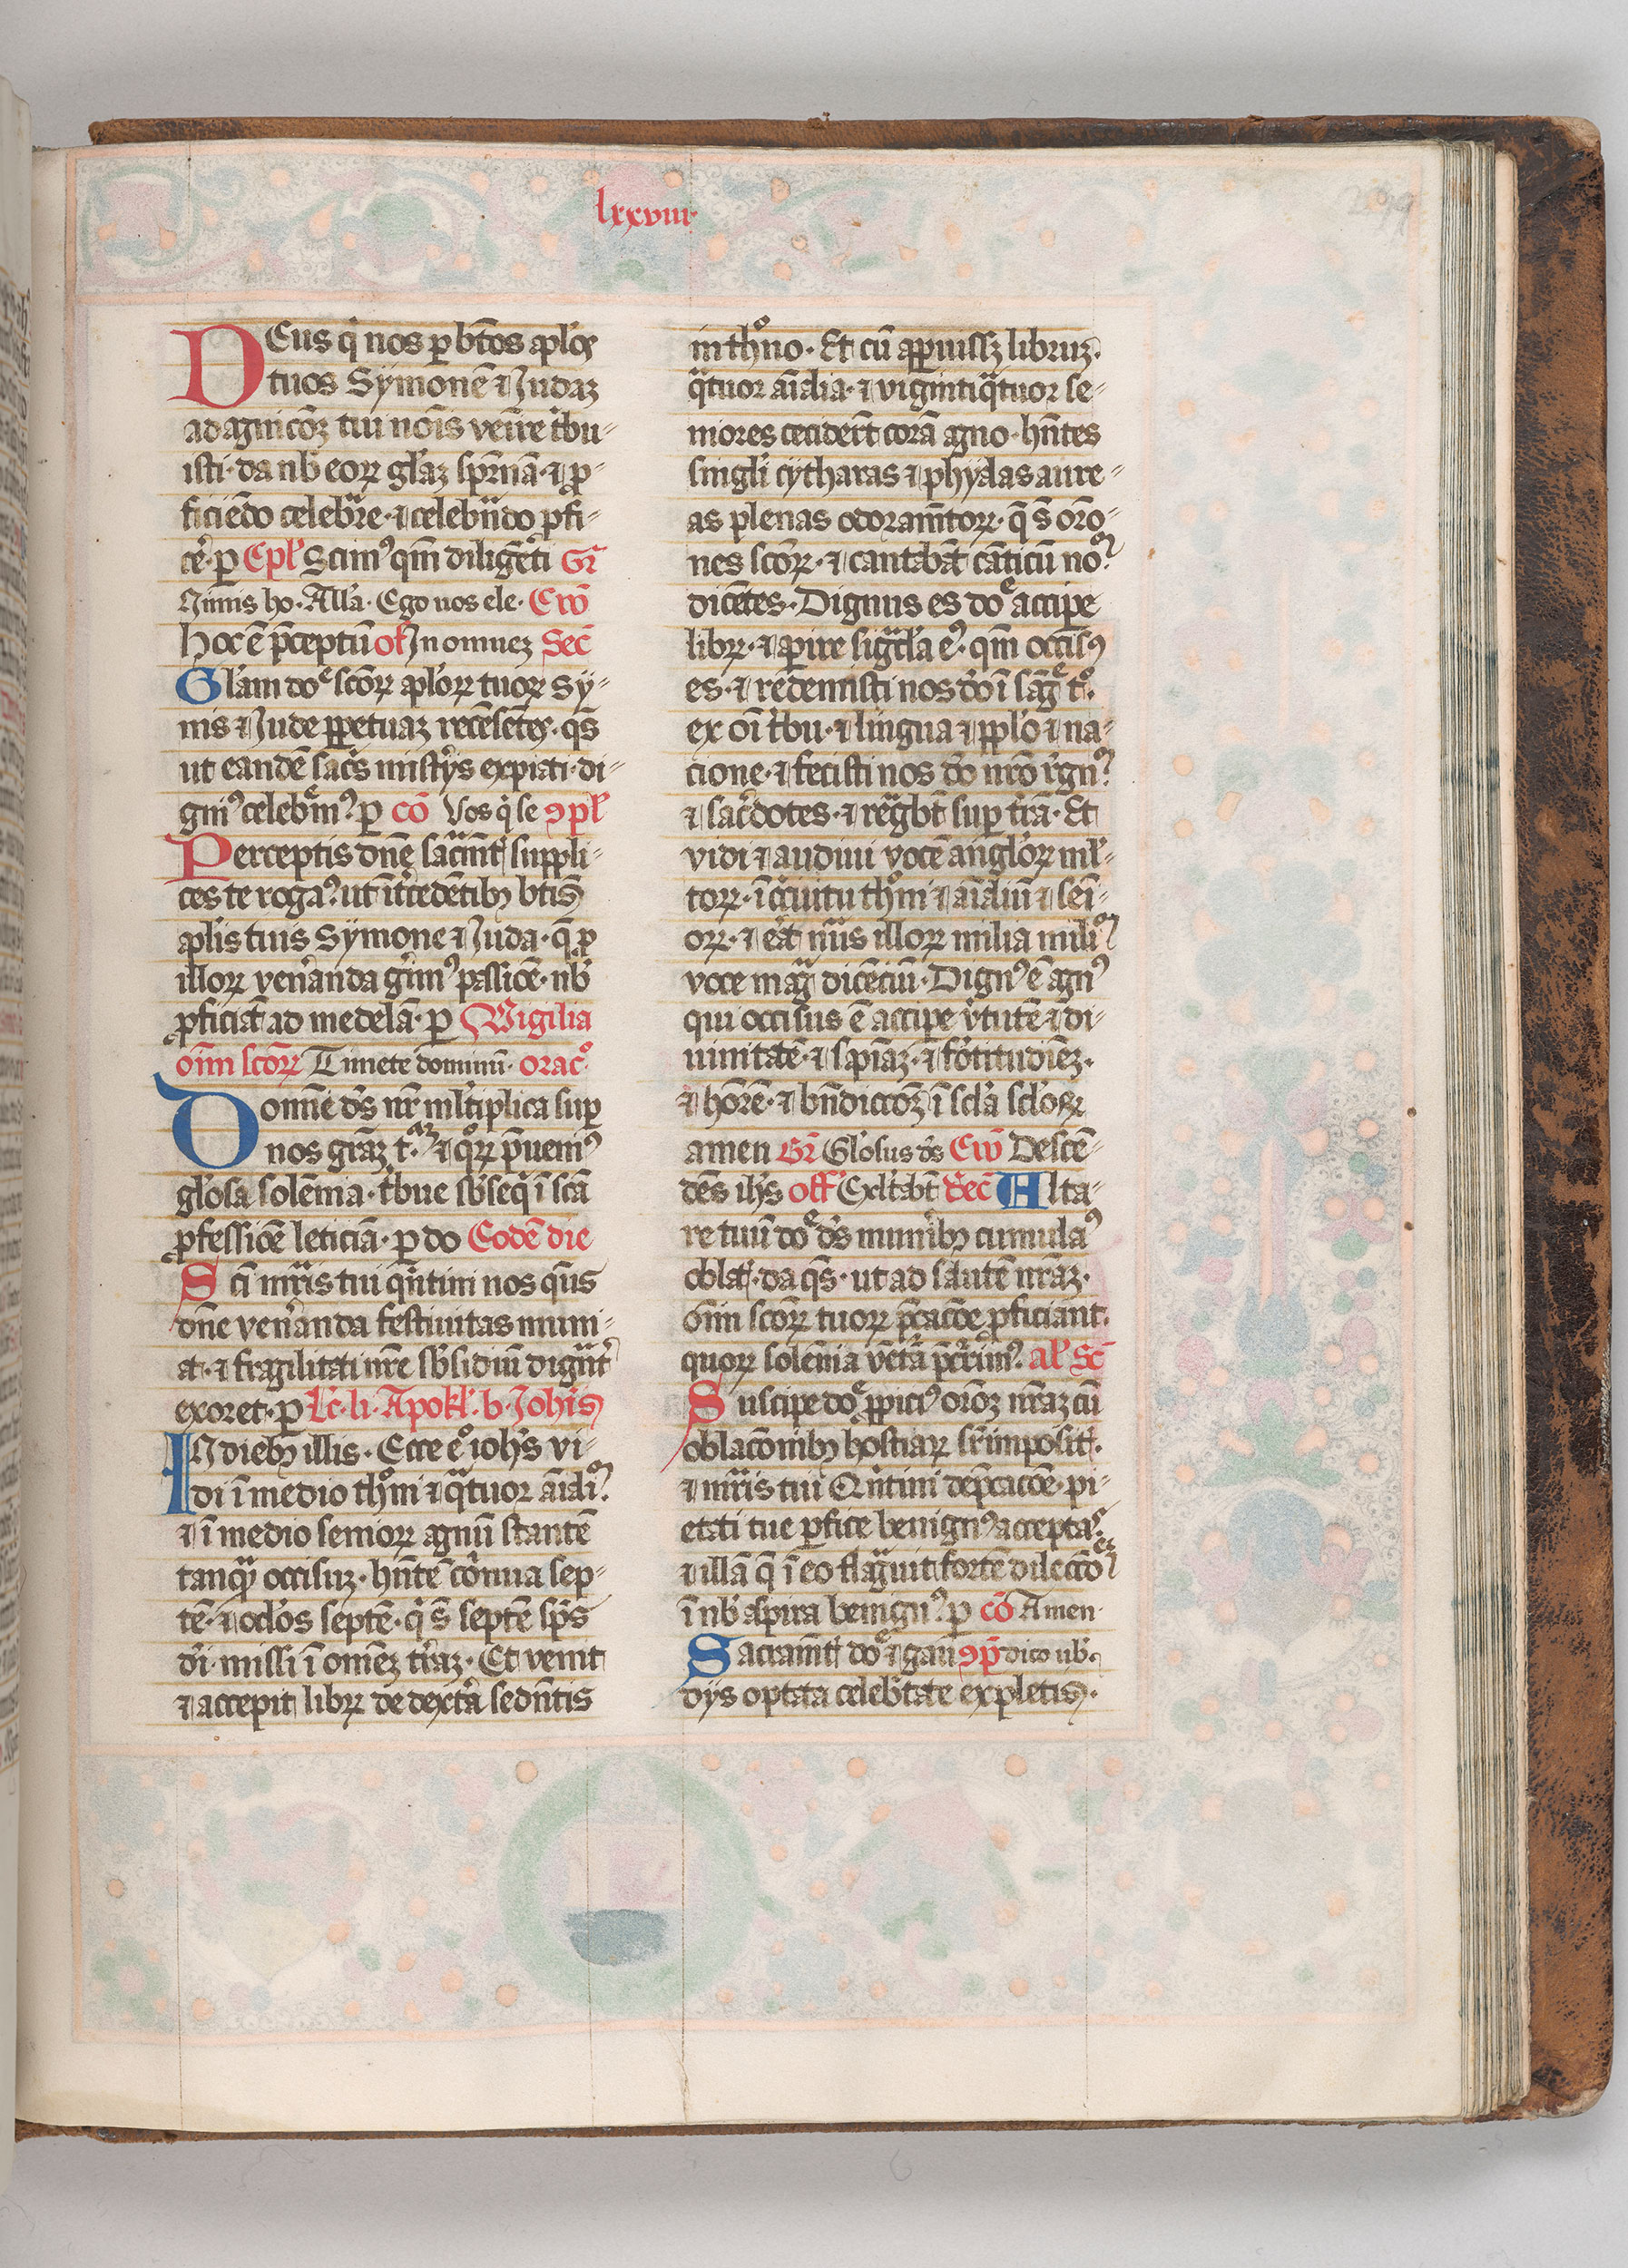 lxxviii
DEus q̇ nos ꝑ bt̄os apl'oꝝ
tuos Sẏmonē ⁊ Judaz
ad agnicōz tui nōis ven̄re t'bu-
isti · da nb̄ eoꝝ gl'az spr̄nā · ⁊ ꝓ-
ficiēdo celebr̄e · ⁊ celebn̄do ꝓfi-
ce · ꝑ Epl' Scim⁹ qm̄ diligēti Gr̄
Nimis ho · All'a · Ego uos ele · Ew̄
hoc ē p̄ceptū of Jn omnez Sec̄
Gl'am doͤ scōꝝ apl'oꝝ tuoꝝ Sẏ-
nis ⁊ Jude ꝑpetuaz recēsētes · qs̄
ut eandē sacs̄ mist'ẏs expiati · di-
gni⁹ celebrͤm⁹ ꝑ cō Vos q̇ se ꝯpl'
Perceptis dn̄e sacīnt' suppli-
ces te roga⁹ ut īt'cedētibꝫ bt̄is
apl'is tuis Sẏmone ⁊ Juda · q̄ ꝓ
illoꝝ ven'anda gim⁹ passiōe · nb̄
ꝓficiāt ad medelā · ꝑ Vigilia
oīm scōꝝ Timete dominū · oracͦ
Domīe dꝰs nr̄ ml'tiplica suꝑ
nos graz t. ⁊ qͦꝝ p̄uenim⁹
gl'osa solēnia · t'bue sb'seqͥ ī scā
ꝓfessiōe leticiā · ꝑ do Eodē die
Sci mr̄is tui qͥntini nos qs̄
dn̄e ven'anda festiuitas muni-
at · ⁊ fragilitati nr̄e sb'sidiū dignāt'
exoret · ꝑ Lc̄ · li · Apokl' · b · Joh'is
IN diebꝫ illis · Ecce eͦ ioh's vi-
di ī medio thͦni ⁊ q̈tuor aīali
⁊ ī medio senioꝝ agnū stantē
tanq̈ occisuz · hn̄tē cornua sep-
tē · ⁊ ocl'os septē · q̇ s̄ septē sp̄s
di · missi ī omēz t'raz · Et venit
⁊ accepit libꝝ de dext'a sedn̄tis
in thͦno · Et cū aꝑuissz libruz ·
q̈tuor aīalia · ⁊ vigintiq̈tuor se-
niores cecider̄t corā agno · hn̄tes
singl'i cẏtharas ⁊ phẏalas aure-
as plenas odoramtoꝝ · q̄ s̄ orō-
nes scōꝝ · ⁊ cantabāt cāticū noͫ
dicētes · Dignus es doͤ accipe
libꝝ · ⁊ aꝑire sigͣcl'a e⁹ · qm̄ occis⁹
es · ⁊ redemisti nos do ī sāgͤ tͦ.
ex oī t'bu · ⁊ lingua ⁊ ppl'o ⁊ na-
cione · ⁊ fecisti nos do nr̄o rgn⁹
⁊ sac'dotes · ⁊ regͣbt̄ suꝑ t'rā · Et
vidi ⁊ audiui vocē angl'oꝝ ml'-
toꝝ · ī cͥcuitu thͦni ⁊ aīaliū ⁊ sen-
oꝝ · ⁊ erāt nu⁹s illoꝝ milia mili
voce magͣ dicētiū · Dign⁹ ē agn⁹
qui occisus ē accipe v'tutē ⁊ di-
uinitatē · ⁊ sapīaz · ⁊ fōtitudiēz ·
⁊ honorē · ⁊ bn̄diccōz ī scl'a scl'oꝝ
amen Gr̄ Gl'osus ds̄ Ew̄ Descē-
dēs ih's off' Exl'tabt̄ Sec̄ Alta-
re tuū doͤ ds̄ munībꝫ cumula⁹
oblat' · da qs̄ · ut ad salutē nr̄az ·
oīm scōꝝ tuoꝝ p̄cacōe ꝓficiant ·
quoꝝ solēnia vētᵃ p̄cr̄im⁹ · al' Sc̄
Suscipe doͤ ꝓpici⁹ orōz nr̄az cū
oblacōnibꝫ hostiaꝝ sr̄imposit' ·
⁊ mr̄is tui Qͥntini dep̄cacōe · pi-
etati tue ꝑfice benign⁹ accepta⁹
⁊ illā q̄ ī eo flagͣuit fortē dilecciō
ī nb̄ aspira benign⁹ · ꝑ cō Amen ·
Sacramt' doͤ ⁊ gau ꝯp̄ dico ub' ·
dẏs optata celeb'tate expletis ·